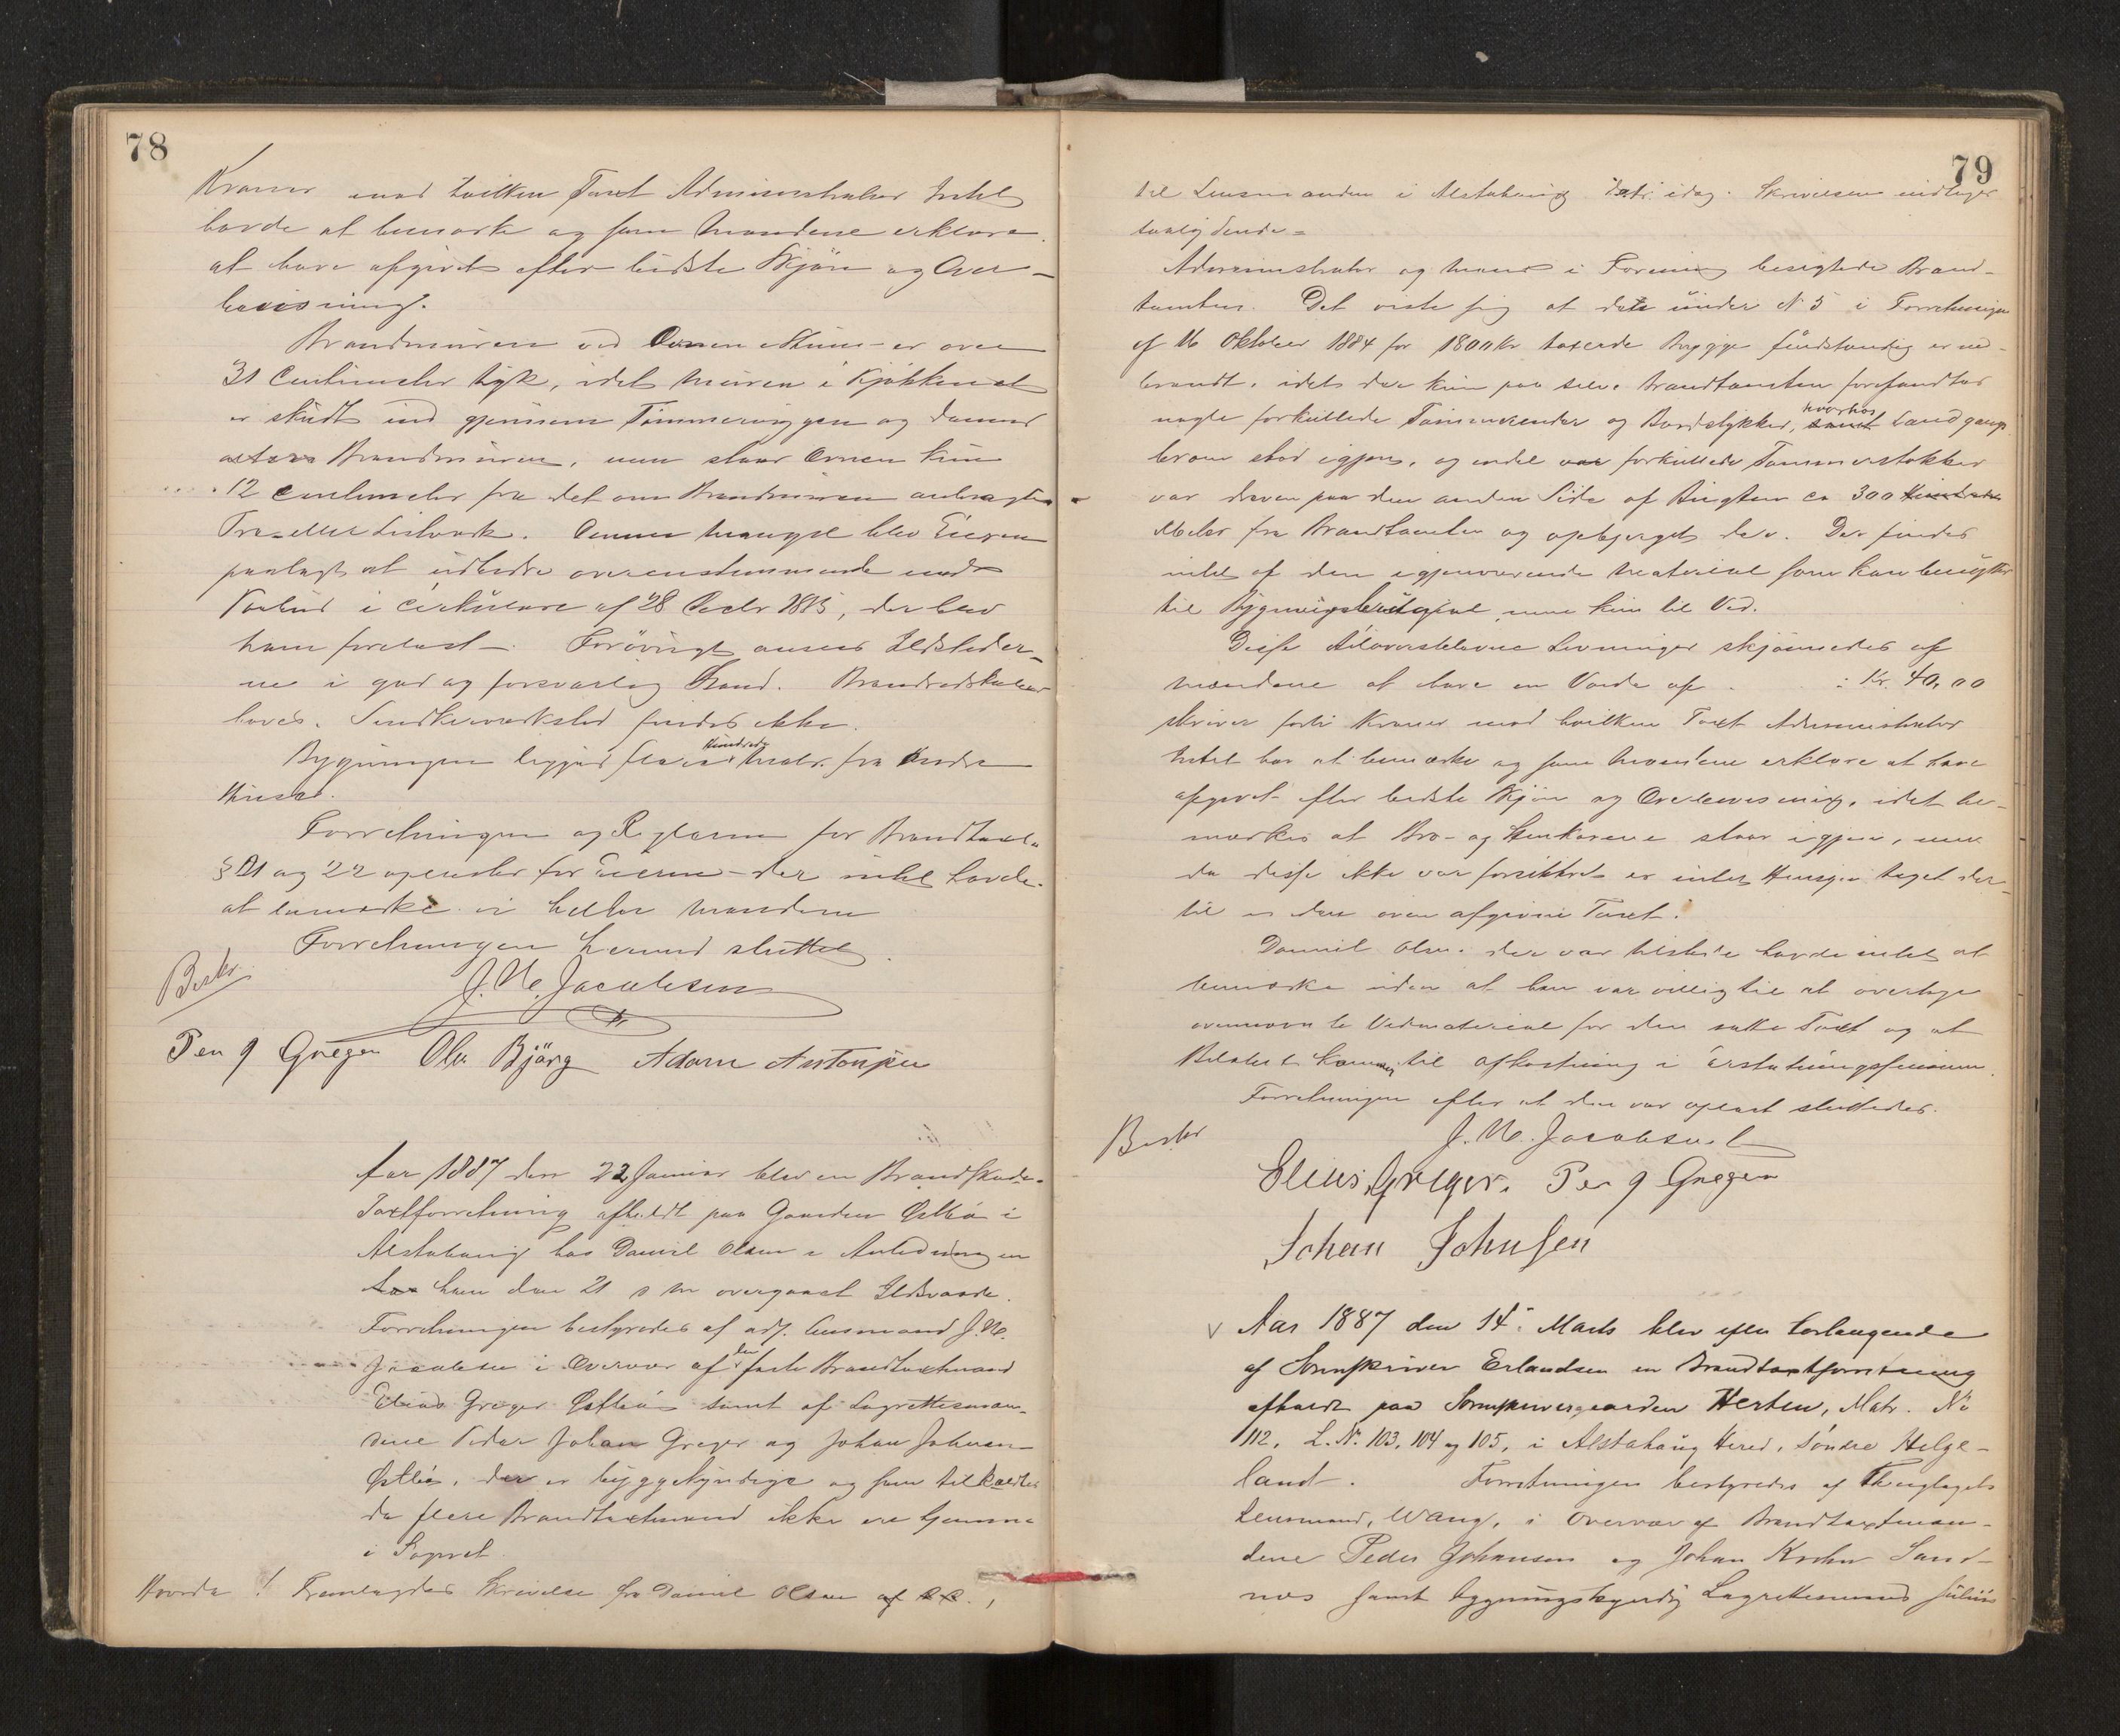 78
Kroner mod hvilken Taxt Administrator Intet
havde at bemærke og som Mændene erklære
at have afgivet efter bedste Skjøn og Over-
bevisning.
Brandmuren ved Ovnen er over
31 Centimeter tyk, idet Muren i Kjøkkenet
er skudt ind gjennem Tømmervæggen og danner
Brandmuren, men staar Ovnen kun
12 Centimeter fra det om Brandmuren anbragte
Træ- eller Listværk. Denne Mangel blev Eieren
paalagt at udbedre overensstemmende med
Paabud i Cirkulære af 28 Decbr 1815, der blev
ham forelæst. Forøvrigt ansees Ildstæder-
ne i god og forsvarlig Stand. Brandredskaber
haves. Snedkerværksted findes ikke.
Bygningen ligger flere Hundrede Meter fra andre
Huse.
Forretningen og Reglerne for Brandtaxt
§ 21 og 22 oplæstes for Eieren - der intet havde
at bemærke ei heller Mændene
Forretningen hermed sluttet.
Bestr
J. N. Jacobsen
Per J Greger Ole Bjørg Adam Antonsen
Aar 1887 den 22 Januar blev en Brandskade-
Taxtforretning afholdt paa Gaarden Østbø i
Alstahaug hos Daniel Olsen i Anledning en
ham den 21 d M overgaaet Ildsvaade.
Forretningen bestyredes af adj. Lensmand J. N.
Jacobsen i Overvær af den faste Brandtaxtmand
Elias Greger Østbø samt af Lagrettesmæn-
dene Peder Johan Greger og Johan Johnsen
Østbø, der er byggekyndige og som tilkaldtes
da flere Brandtaxtmænd ikke ere hjemme
i Sognet.
Hvorda! Fremlagdes Skrivelse fra Daniel Olsen af D. D.,
79
til Lensmanden i Alstahaug datr idag. Skrivelsen indtages
saalydende =
Administrator og Mænd i Forening besigtede Brand-
tomten. Det viste sig at det under N 5 i Forretningen
af 16 Oktober 1884 for 1800 Kr taxerede Brygge fuldstændig er ned-
brændt, idet der kun paa selve Brandtomten forefandtes
nogle forkullede Tømmerender og Bordstykker, hvorhos samt Landgangs
broen stod igjen, og endel forkullede Tømmerstokker
var dreven paa den anden Side af Bugten ca 300
Meter fra Brandtomten og opbjerget der. Der findes
intet af den igjenværende Material som kan benyttes
til Bygningsbrug men kun til Ved.
Disse tiloversblevne Levninger skjønnedes af
Mændene at have en Værdi af : Kr. 40,00
skriver forti Kroner mod hvilken Taxt Administrator
Intet har at bemærke og som Mændene erklære at have
afgivet efter bedste Skjøn og Overbevisning, idet be-
mærkes at Bro- og Stenkarene staar igjen, men
da disse ikke var forsikkret er intet Hensyn taget der-
til i den oven afgivne Taxt.
Daniel Olsen der var tilstede havde intet at
bemærke uden at han var villig til at overtage
ovennævnte Vedmaterial for den satte Taxt og at
Beløbet kommer til afkortning i Erstatningssummen.
Forretningen efter at den var oplæst sluttedes.
Bestr
J. N. Jacobsen
Elias Greger. Per J Greger
Johan Johnsen
V Aar 1887 den 14. Marts blev efter Forlangende
af Sorenskriver Erlandsen en Brandtaxtforretning
afholdt paa Sorenskrivergaarden Herten, Matr. No
112, L. No. 103, 104 og 105, i Alstahaug Hered, Søndre Helge-
land. Forretningen bestyredes af Thinglagets
Lensmand, Wang, i Overvær af Brandtaxtmæn-
dene Peder Johansen og Johan Krohn Sand-
nes samt bygningskyndig Lagrettesmand Julius